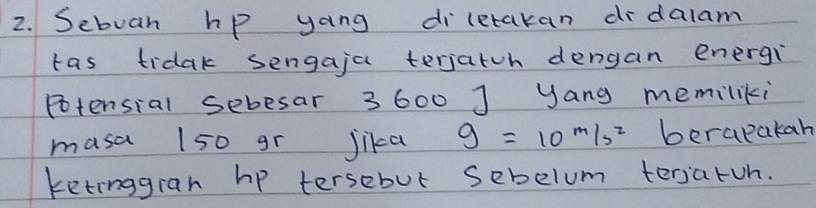 2. Sebuah hp yang diletakan didalam
tas tidak sengaja terjatuh dengan energi
Potensial sebesar 3600 J yang memiliki
masa 150 gr jika g = 10 m/s² berapakah
ketinggian hp tersebut sebelum terjatuh.